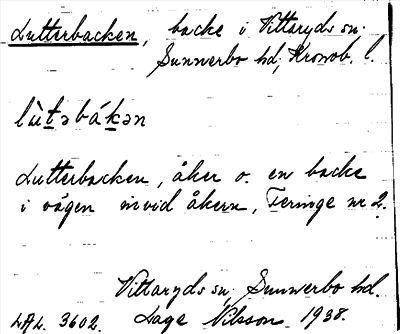 Lutterbacken, backe i Vittaryds sn.
Sunnerbo hd, Kronob. l.
lùt̲əbák̲ən
Lutterbacken, åker o. en backe
i vägen invid åkern, Teringe nr 2.
Vittaryds sn, Sunnerbo hd.
LAL. 3602. Sage Nilsson 1938.